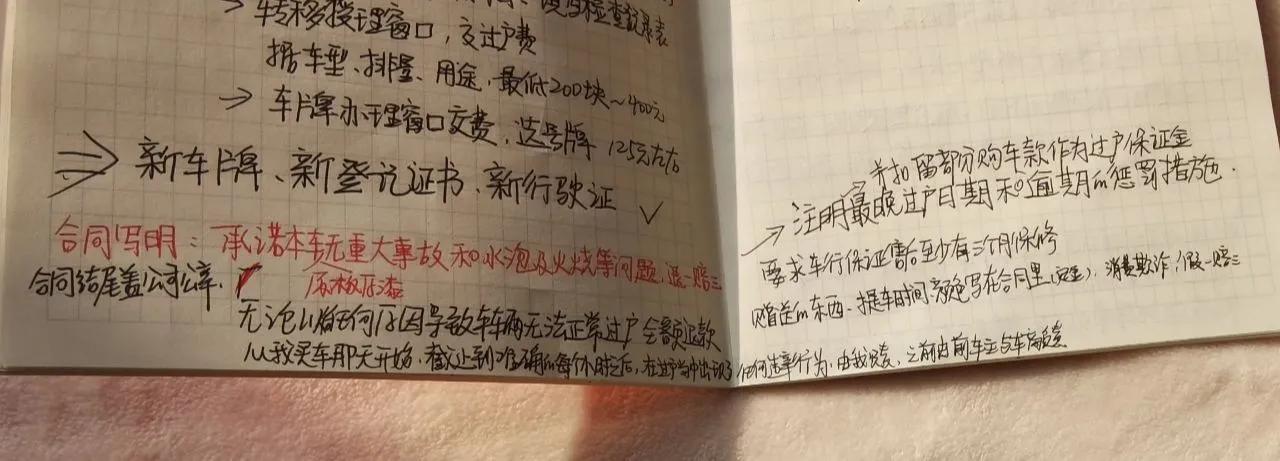 填写检查记录表
→ 转移授理窗口，交过户费
据车型、排量、用途，最低200块~400元
→ 车牌办理窗口交费，选号牌 125元左右
⇒ 新车牌、新登记证书、新行驶证 ✓
合同写明：承诺本车无重大事故和水泡及火烧等问题，退一赔三
原板原漆
合同结尾盖公司公章.
无论以任何原因导致车辆无法正常过户全额退款
从我买车那天开始，截止到准确的每个小时之后，在过户当中出现了任何违章行为，由我负责，之前由前车主与车商负责
→ 并扣留部分购车款作为过户保证金
→ 注明最晚过户日期和逾期的惩罚措施.
要求车行保证售后至少有三个月保修
赠送的东西、提车时间、颜色写在合同里(定金)，消费欺诈，假一赔三